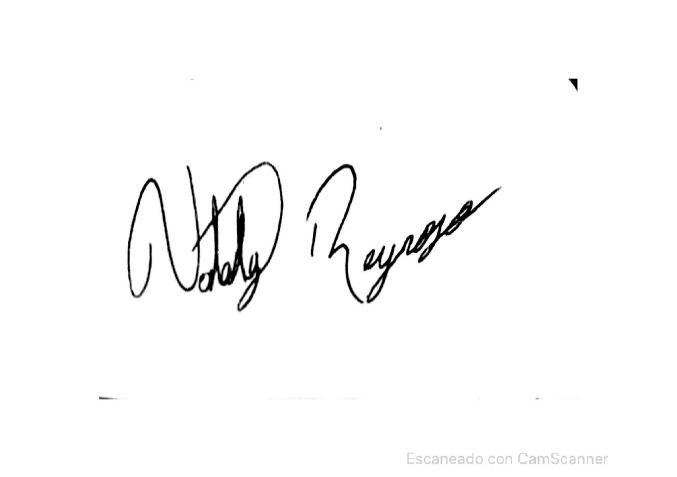 Nataly Reynoso
Escaneado con CamScanner